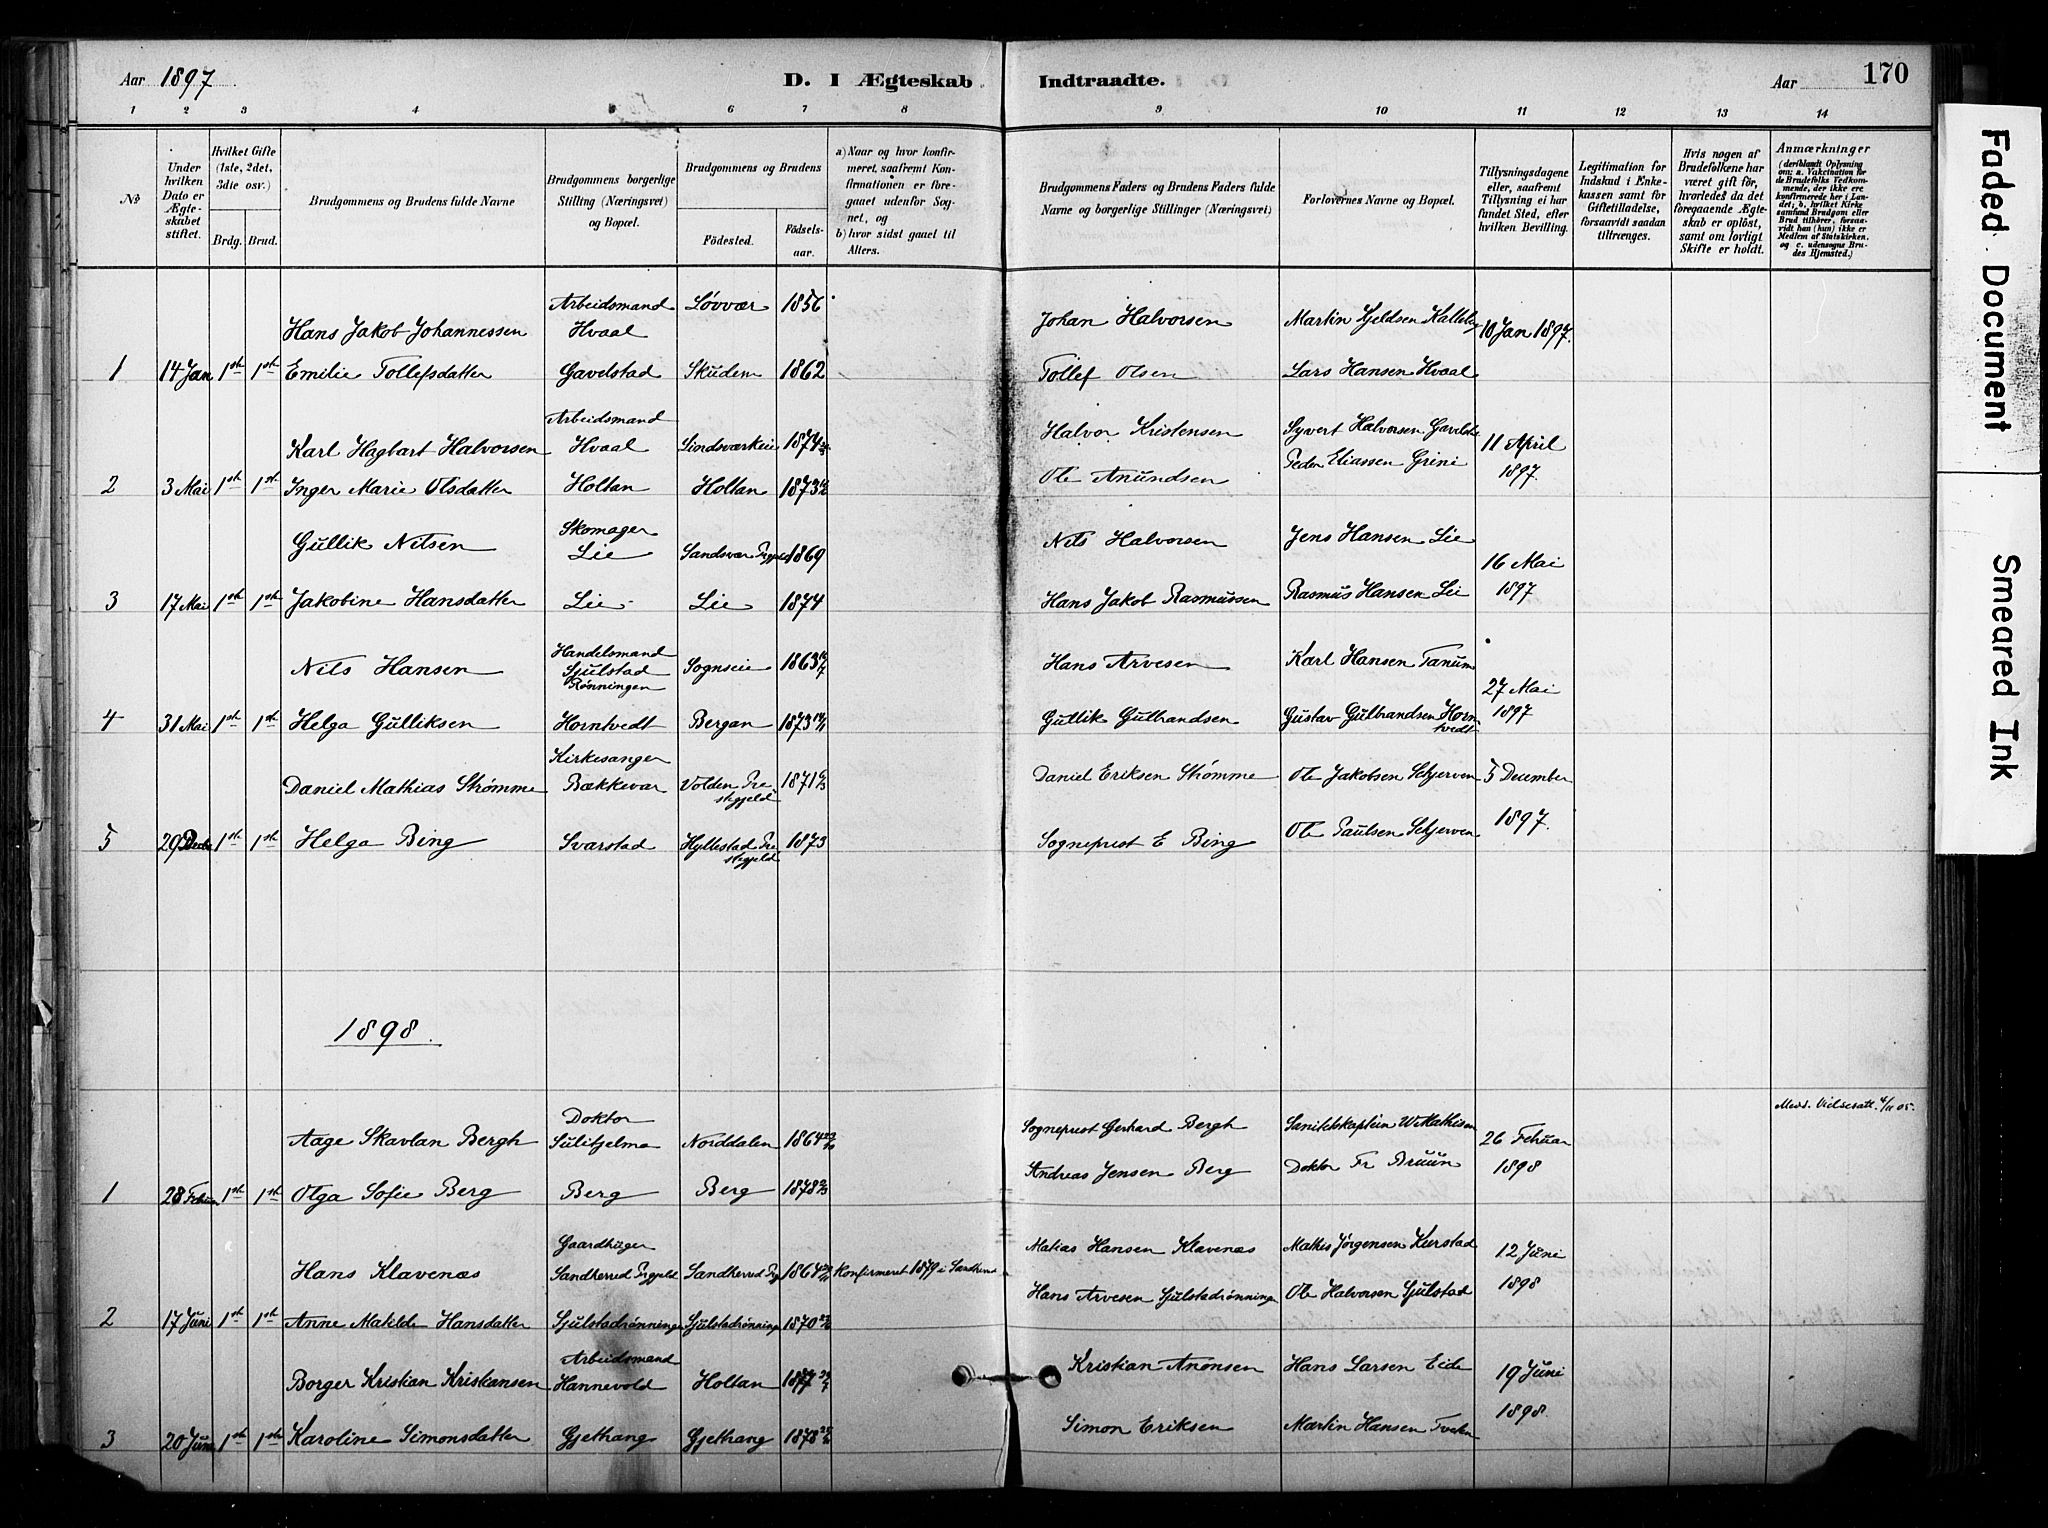 Aar 1897
D. I Ægteskab Indtraadte.
Aar
170
1 2 3 4 5 6 7 8 9 10 11 12 13 14
No
Under hvilken Dato er Ægteskabet stiftet.
Hvilket Gifte (1ste, 2det, 3die osv.)
Brdg. Brud.
Brudgommens og Brudens fulde Navne
Brudgommens borgerlige Stilling (Næringsvei) og Bopæl.
Brudgommens og Brudens
Fødested.
Fødselsaar.
a) Naar og hvor konfirmeret, saafremt Konfirmationen er foregaaet udenfor Sognet, og
b) hvor sidst gaaet til Alters.
Brudgommens Faders og Brudens Faders fulde Navne og borgerlige Stillinger (Næringsvei)
Forlovernes Navne og Bopæl.
Tillysningsdagene eller, saafremt Tillysning ei har fundet Sted, efter hvilken Bevilling.
Legitimation for Indskud i Enkekassen samt for Giftetilladelse, forsaavidt saadan tiltrænges.
Hvis nogen af Brudefolkene har været gift før, hvorledes da det foregaaende Ægteskab er opløst, samt om lovligt Skifte er holdt.
Anmærkninger
(deriblandt Oplysning om: a. Vakcination for de Brudefolks Vedkommende, der ikke ere konfirmerede her i Landet; b. hvilket Kirkesamfund Brudgom eller Brud tilhører, forsaavidt han (hun) ikke er Medlem af Statskirken. og c. udensogns Brudes Hjemsted.)
Hans Jakob Johannessen Arbeidsmand Hvaal Løvvær 1856 Johan Halvorsen Martin Gjeldsen 10 Jan 1897.
1 14 Jan 1ste 1ste Emilie Tollefsdatter Gavelstad 1862 Tollef Olsen Lars Hansen Hvaal
Karl Hagbart Halvorsen Arbeidsmand Hvaal Lindsværkeie 1874 Halvor Kristensen Syvert Halvorsen 11 April
2 3 Mai 1ste 1ste Inger Marie Olsdatter Holtan Holtan 1873 Ole Anundsen Peder Eliassen Grini 1897.
Gullik Nilsen Skomager Lie Sandsvær 1869 Nils Halvorsen Jens Hansen Lie 16 Mai
3 17 Mai 1ste 1ste Jakobine Hansdatter Lie Lie 1874 Hans Jakob Rasmussen Rasmus Hansen Lie 1897
Nils Hansen Handelsmand Sjulstad Rønningen Sognseie 1863 Hans Arvesen Karl Hansen Tanum 27 Mai
4 31 Mai 1ste 1ste Helga Gulliksen Horntvedt Bergan 1873 Gullik Gulbrandsen Gustav Gulbrandsen Horntvedt 1897
Daniel Mathias Strømme Kirkesanger Bækkevar Volden Prestegjeld 1871 Daniel Eriksen Strømme Ole Jakobsen Skjerven 5 December
5 29 1ste 1ste Helga Bing Svarstad Hyllestad Prestegjeld 1873 Sogneprest E Bing Ole Paulsen Skjerven 1897.
1898.
Aage Skavlan Bergh Doktor Sulitjelma Norddalen 1864 Sogneprest Gerhard Bergh Sanitetskaptein W Mathisen 26 Februar
1 28 1ste 1ste Olga Sofie Berg Berg Berg 1878 Andreas Jensen Berg Doktor Fr Bruun 1898
Hans Klavenæs Gaardbruger Sandherred Sandherred 1864 Konfirmeret 1879 i Sandherred Matias Hansen Klavenæs Mathis Jørgensen 12 Juni
2 17 Juni 1ste 1ste Anne Matilde Hansdatter Sjulstadrønningen Sjulstadrønningen 1870 Hans Arvesen Sjulstadrønningen Ole Halvorsen Sjulstad 1898
Borger Kristian Kristiansen Arbeidsmand Hannevold Holtan 1877 Kristian Anonsen Hans Larsen Eide 19 Juni
3 20 Juni 1ste 1ste Karoline Simonsdatter Gjethang Gjethang 1878 Simon Eriksen Martin Hansen 1898.
Faded Document
Smeared Ink